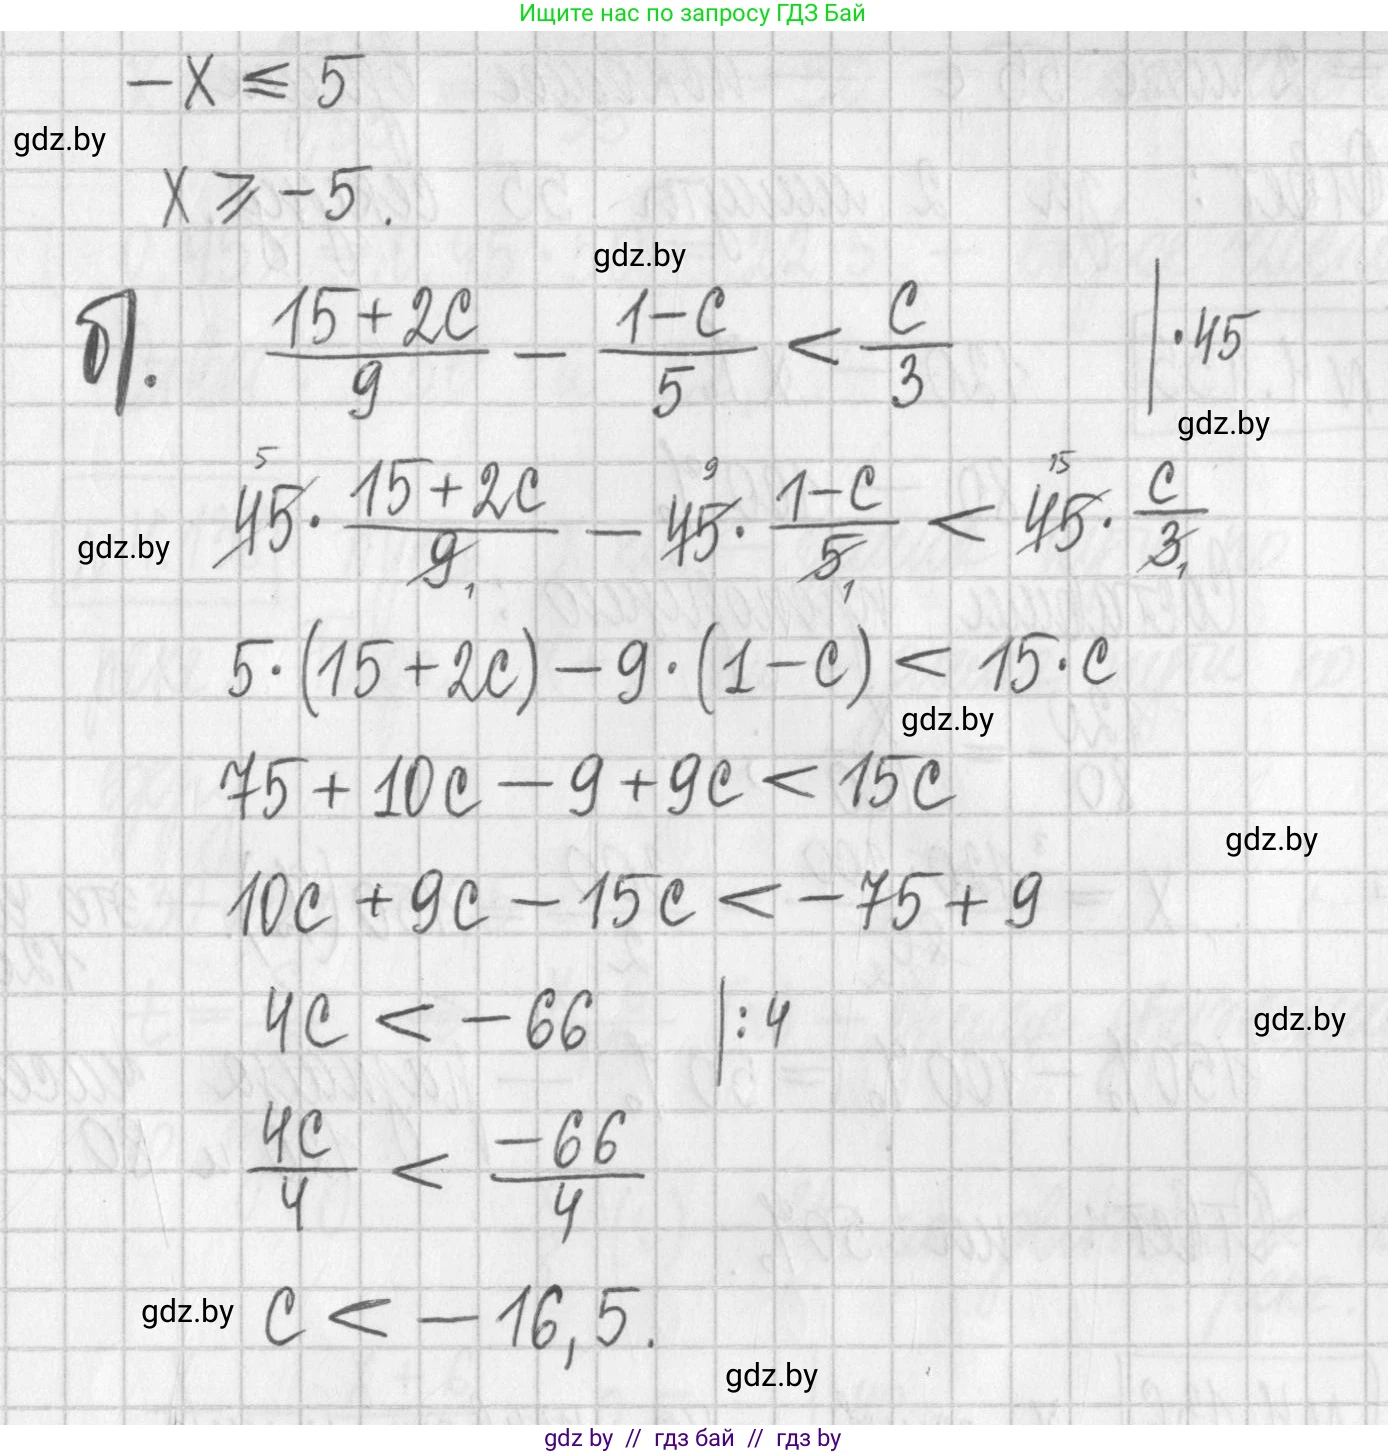 Ищите нас по запросу ГДЗ Бай
-x ≤ 5
gdz.by
x ≥ -5.
gdz.by
б). (15+2c)/9 - (1-c)/5 < c/3 | ·45
gdz.by
45^5 · (15+2c)/9_1 - 45^9 · (1-c)/5_1 < 45^15 · c/3_1
gdz.by
5·(15+2c) - 9·(1-c) < 15·c
gdz.by
75 + 10c - 9 + 9c < 15c
gdz.by
10c + 9c - 15c < -75 + 9
4c < -66 | :4
gdz.by
4c/4 < -66/4
gdz.by
c < -16,5.
gdz.by
gdz by // гдз бай // гдз by